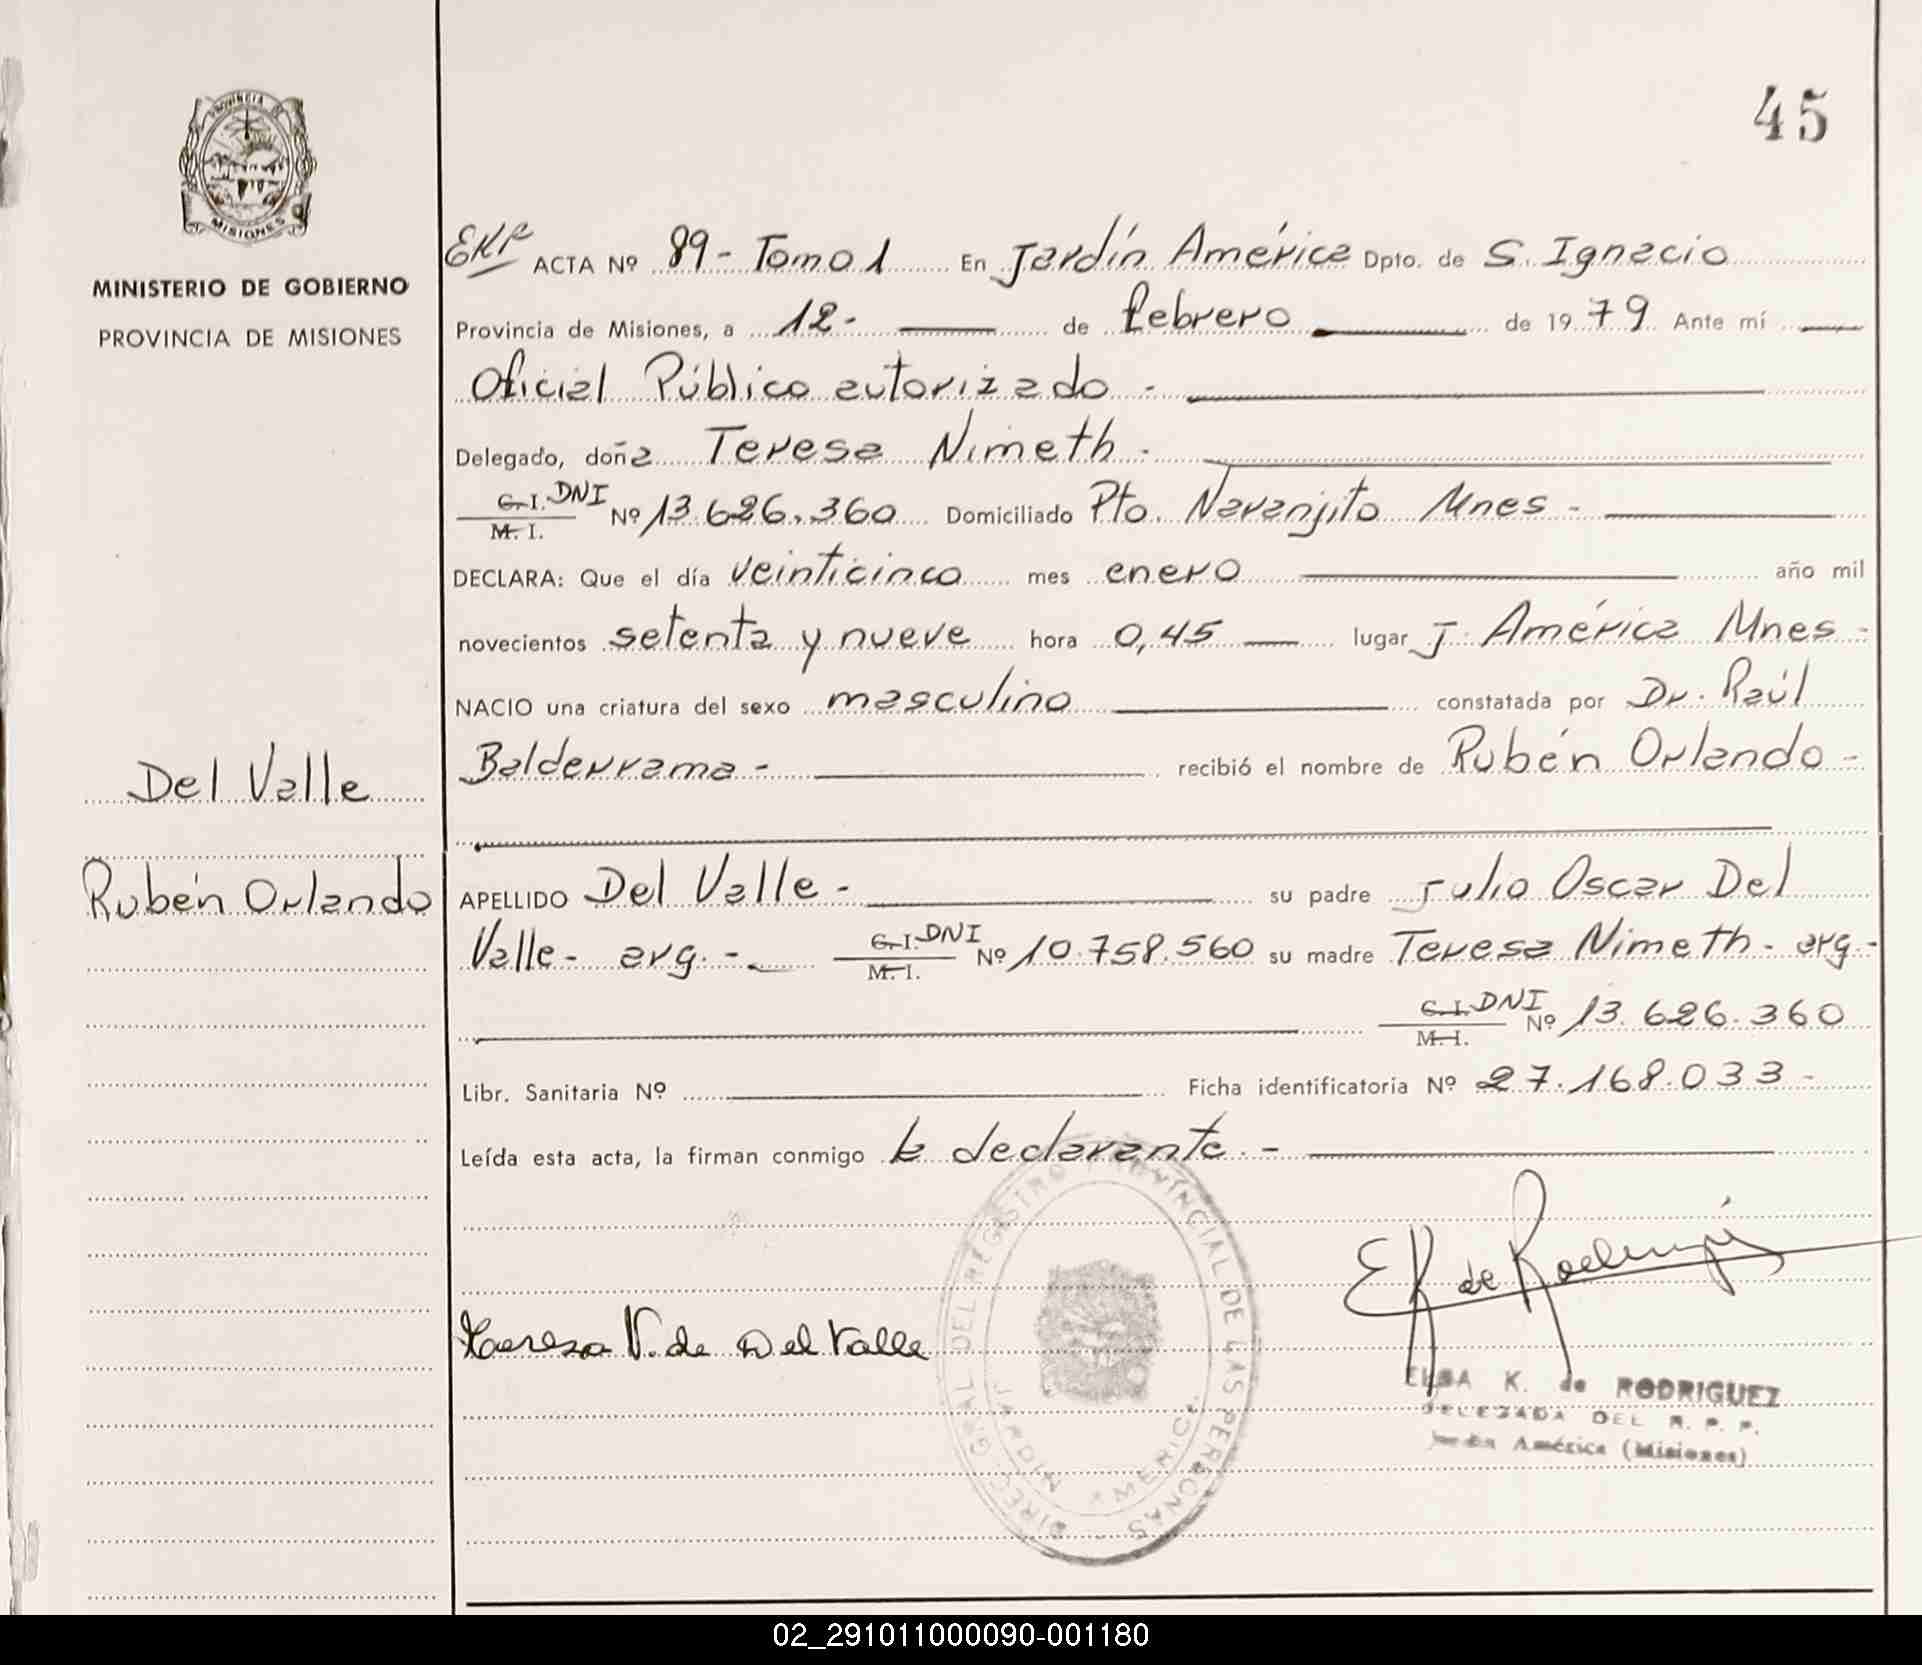 45
PROVINCIA DE
MISIONES
MINISTERIO DE GOBIERNO
PROVINCIA DE MISIONES
ACTA Nº 89 - Tomo 1 En Jardín América Dpto. de S. Ignacio
Provincia de Misiones, a 12- de febrero de 1979 Ante mí
Oficial Público autorizado -
Delegado, doña Teresa Nimeth -
C.I. DNI
M. I. Nº 13.626.360 Domiciliado Pto. Naranjito Mnes -
DECLARA: Que el día veinticinco mes enero año mil
novecientos setenta y nueve hora 0,45 lugar J. América Mnes -
NACIO una criatura del sexo masculino constatada por Dr. Raúl
Balderrama - recibió el nombre de Rubén Orlando -
Del Valle
Rubén Orlando
APELLIDO Del Valle - su padre Julio Oscar Del
Valle - arg. - C.I. DNI M.I. Nº 10.758.560 su madre Teresa Nimeth - arg -
C.I. DNI M.I. Nº 13.626.360
Libr. Sanitaria Nº Ficha identificatoria Nº 27.168.033 -
Leída esta acta, la firman conmigo la declarante. -
DIREC. GRAL DEL REGISTRO PROVINCIAL DE LAS PERSONAS -
JARDIN AMERICA
Teresa N. de Del Valle
EK de Rodriguez
ELBA K. de RODRIGUEZ
DELEGADA DEL R. P. P.
Jardín América (Misiones)
02_291011000090-001180